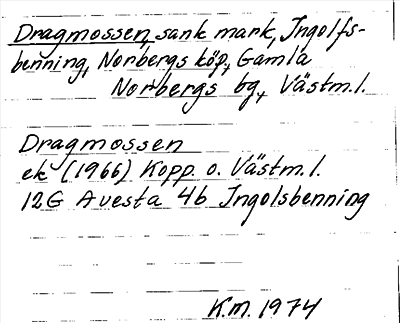 Dragmossen, sank mark, Ingolfs-
benning, Norbergs köp, Gamla
Norbergs bg, Västm. l.
Dragmossen
ek (1966) Kopp. o. Västm. l.
12G Avesta 4b Ingolsbenning
K.M. 1974